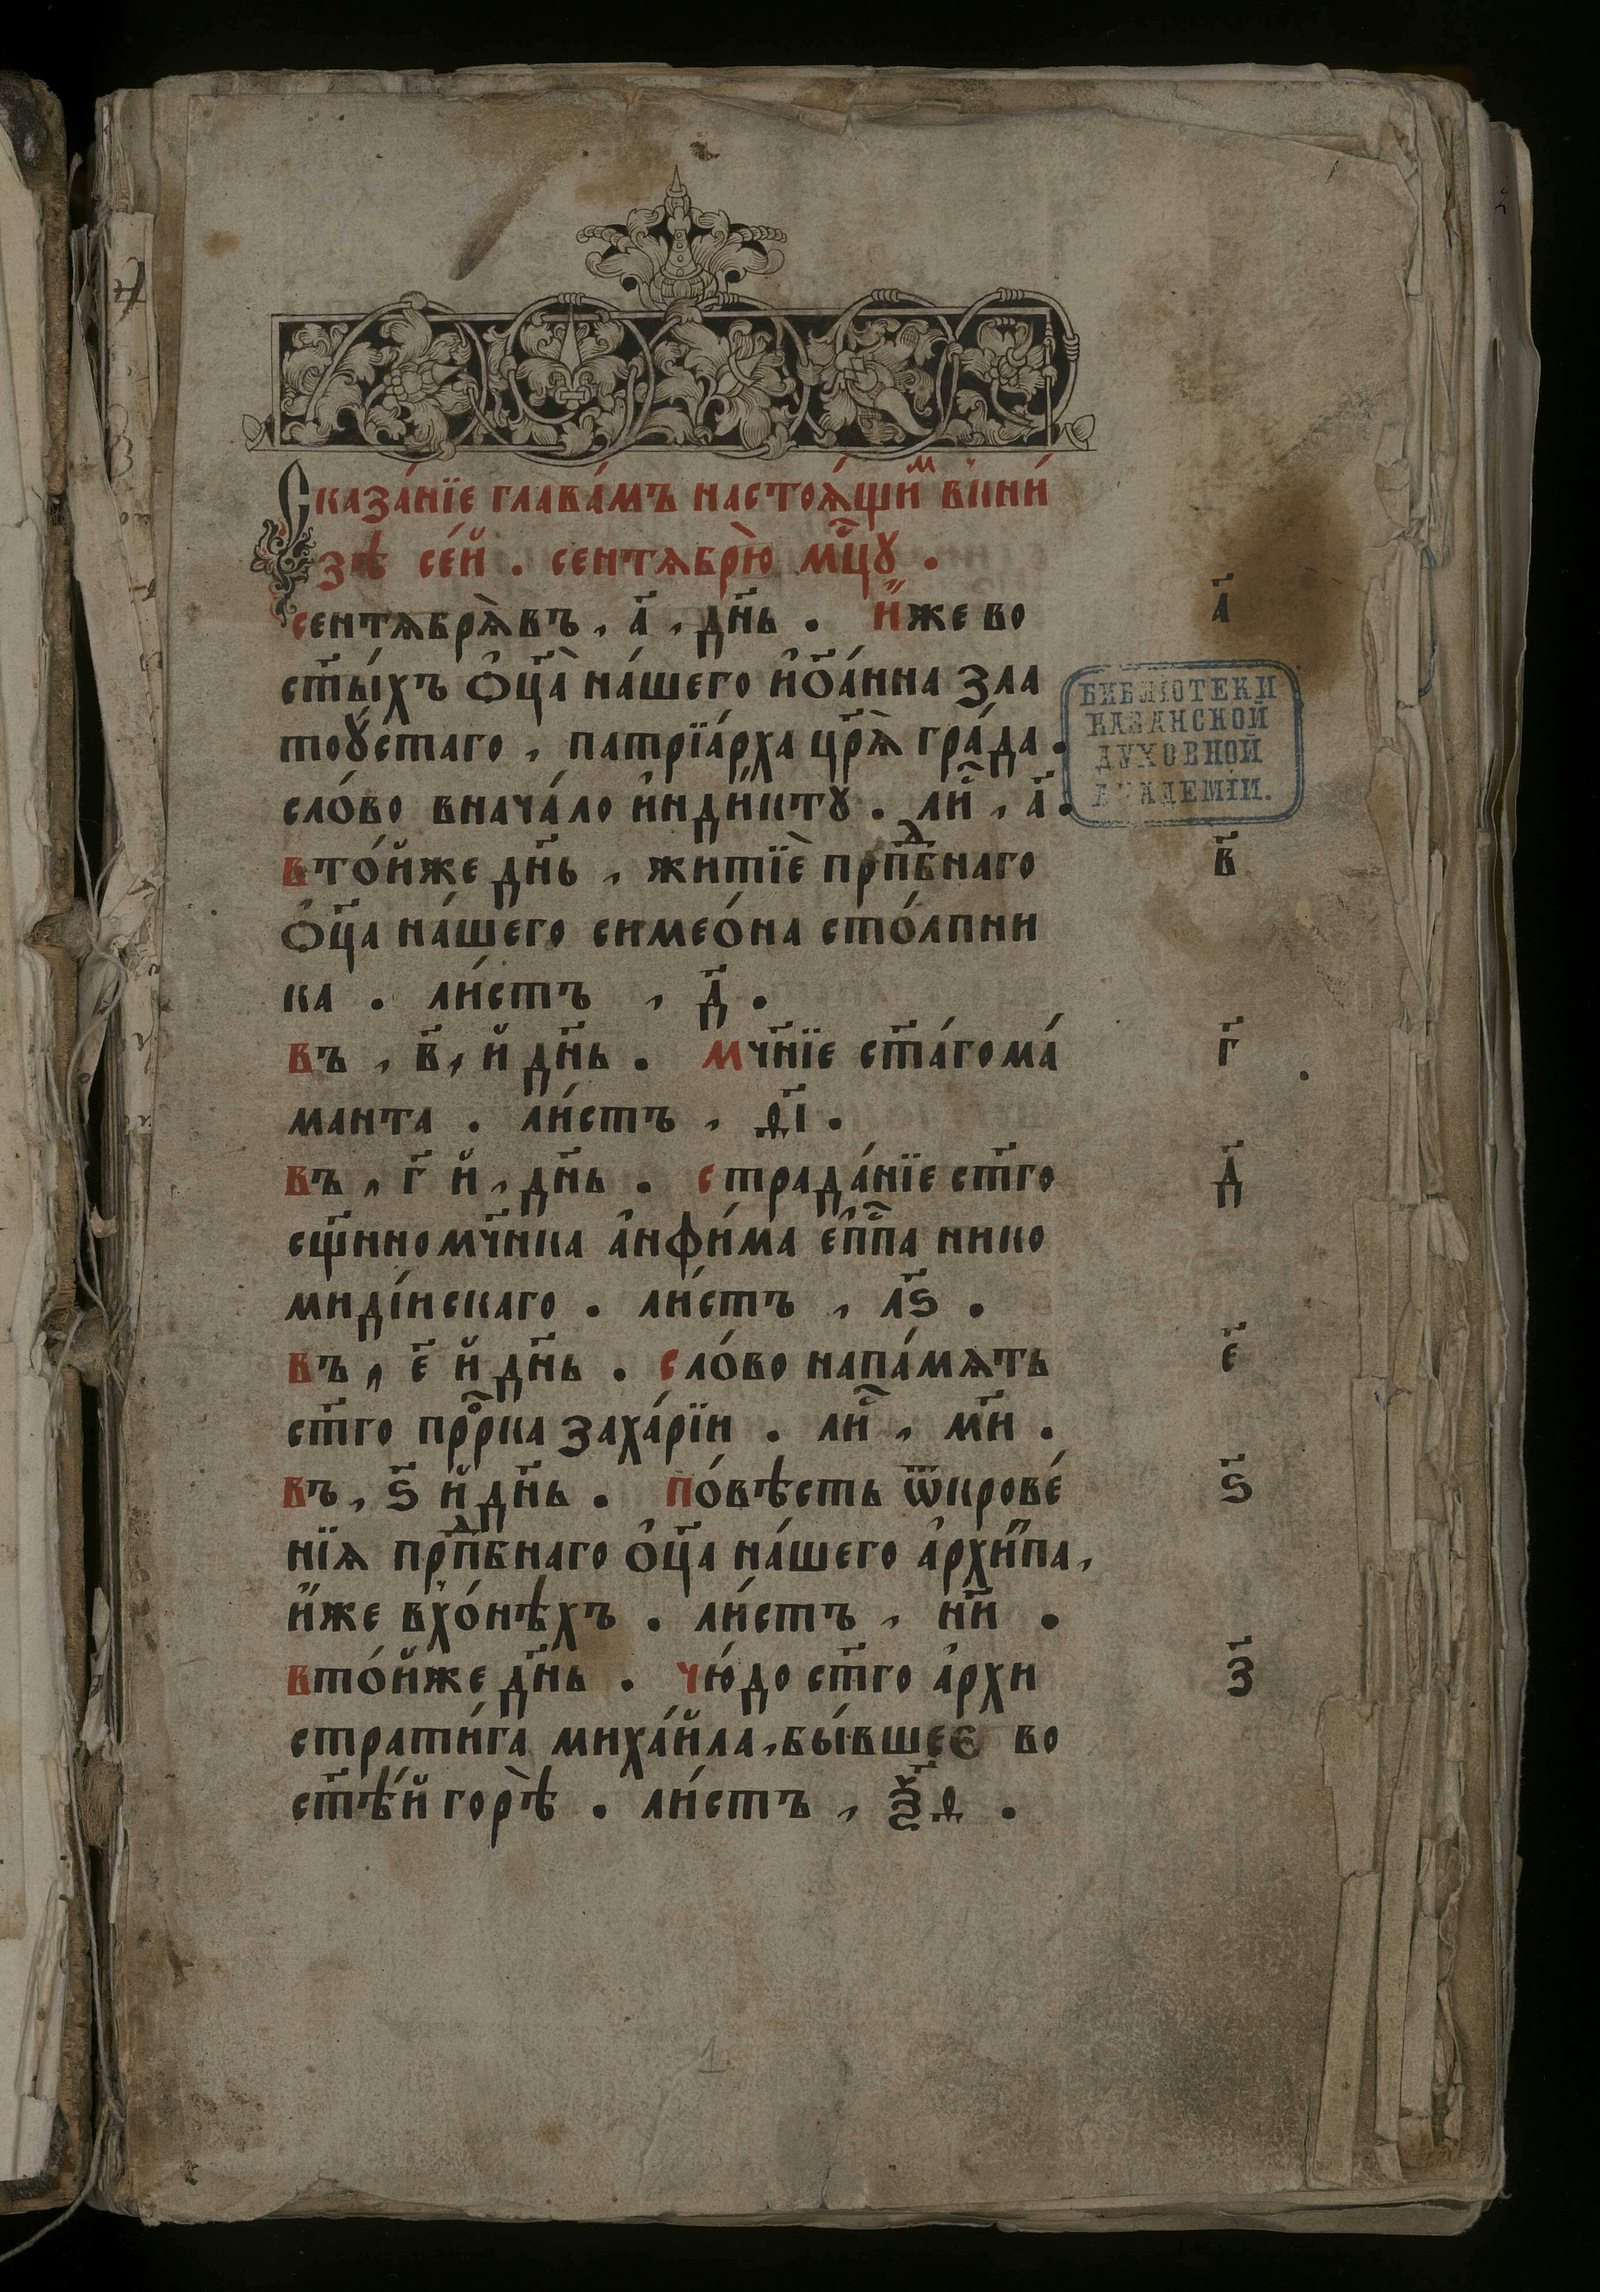 Сказа́нїе глава́мъ настоѧ́щиⷨ вкни́
зѣ се́й . сентѧбрю̀ мⷭ҇цꙋ .
сентѧбрѧ̀ въ , а҃ , дн҃ь . и҆́же во
ст҃ы́хъ ѻ҆ц҃а̀ на́шего и҆ѡ҃а́нна зла
тоꙋ́стаго , патрїа́рха цр҃ѧ̀ гра́да .
сло́во внача́ло и҆нди́ктꙋ . лиⷭ҇ , а҃ .
вто́йже дн҃ь , житїѐ прпⷣбнаго
ѻ҆ц҃а на́шего симео́на сто́лпни
ка . ли́стъ , д҃ .
въ , в҃ , й дн҃ь . мч҃нїе ст҃а́го ма́
манта . ли́стъ , д҃і .
въ , г҃ й , дн҃ь . страда́нїе ст҃го
сщ҃нномч҃нка а҆нфи́ма е҆пⷭ҇па нико
миді́йскаго . ли́стъ , л҃ѕ .
въ , е҃ й дн҃ь . сло́во напа́мѧть
ст҃го прⷪ҇рка заха́рїи . лиⷭ҇ , м҃и .
въ , ѕ҃ й дн҃ь . по́вѣсть ѿкрове́
нїѧ прпⷣбнаго ѻ҆ц҃а на́шего а҆рхи́па ,
и҆́же вхо́нѣхъ . ли́стъ , н҃и .
вто́йже дн҃ь . чю́до ст҃го а҆рхи
страти́га миха́йла , бы́вшее во
ст҃ѣ́й горѣ̀ . ли́стъ , ѯ҃д .
а҃
в҃
г҃
д҃
е҃
ѕ҃
з҃
БИБЛІОТЕКИ
КАЗАНСКОЙ
ДУХОВНОЙ
АКАДЕМІИ.
1